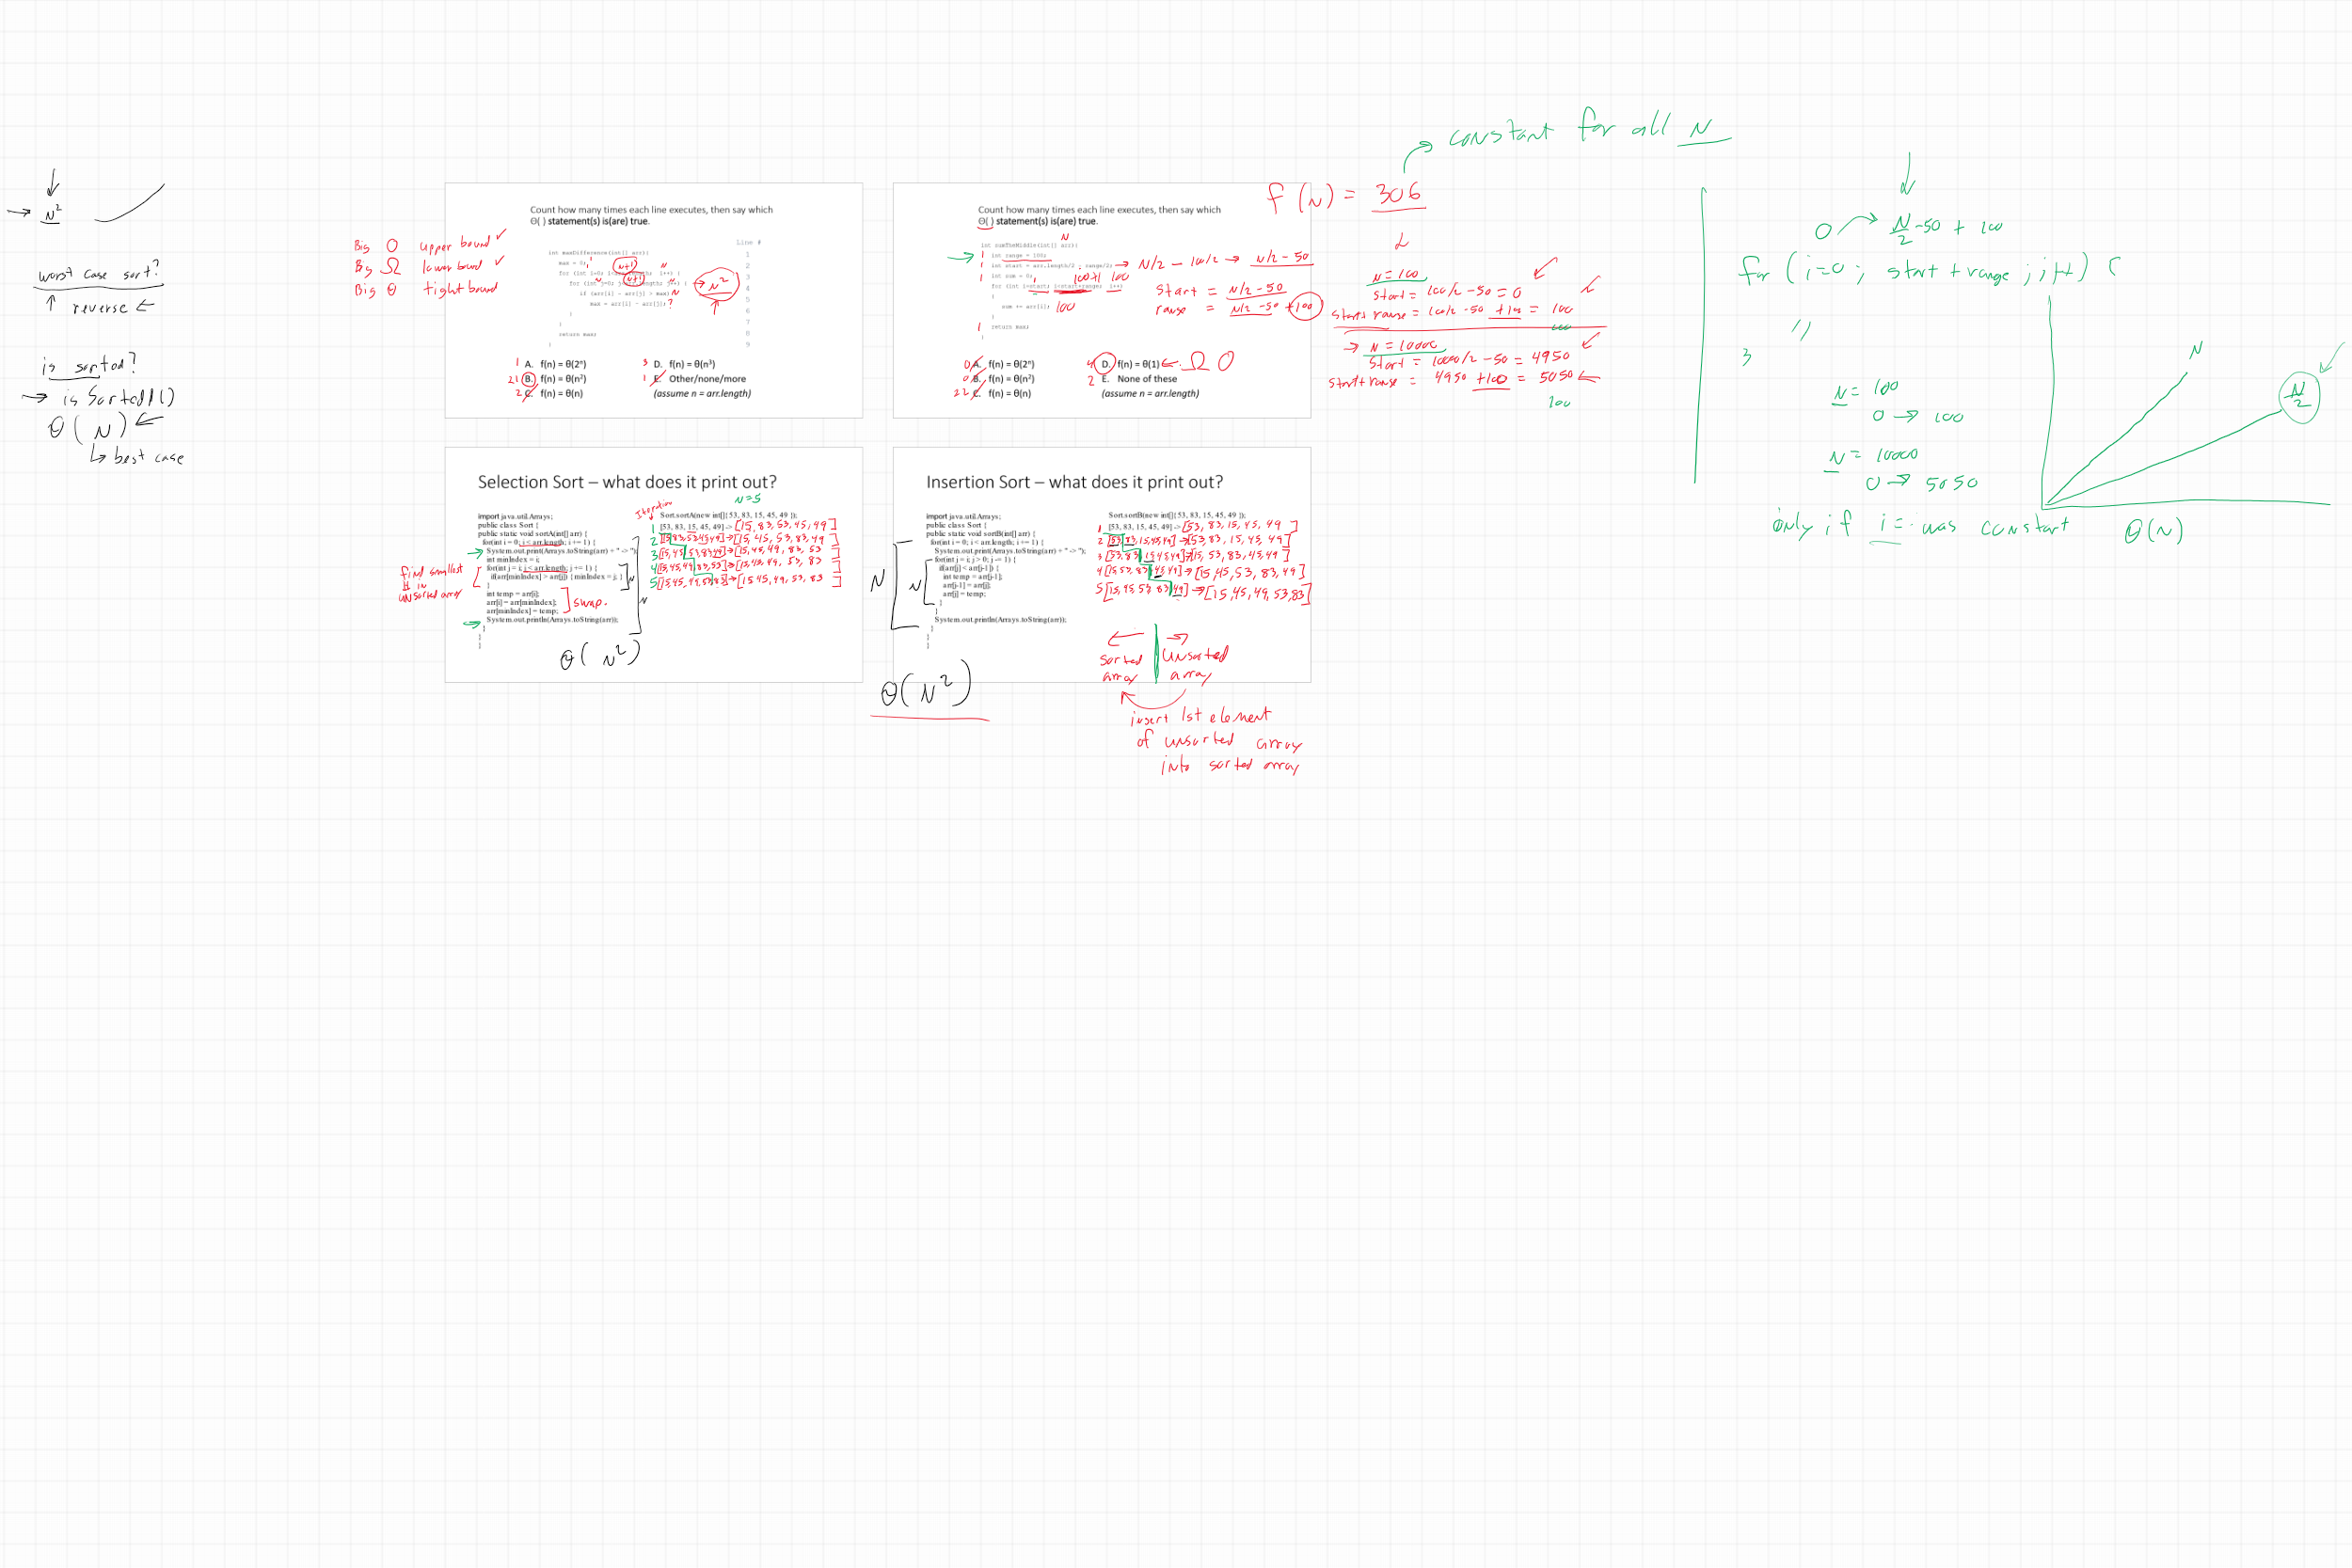 N²
worst case sort?
reverse
is sorted?
isSorted()
θ(N)
best case
Big O upper bound
Big Ω lower bound
Big θ tight bound
Count how many times each line executes, then say which
Θ( ) statement(s) is(are) true.
Line #
int maxDifference(int[] arr){
max = 0;
if (arr[i] - arr[j] > max) N
max = arr[i] - arr[j]; ?
}
}
return max;
}
1
2
3
4
5
6
7
8
9
N²
1 A. f(n) = θ(2ⁿ)
21 B. f(n) = θ(n²)
2 C. f(n) = θ(n)
3 D. f(n) = θ(n³)
1 E. Other/none/more
(assume n = arr.length)
Count how many times each line executes, then say which
Θ( ) statement(s) is(are) true.
N
int sumTheMiddle(int[] arr){
1 int range = 100;
1 int start = arr.length/2 - range/2; → N/2 - 100/2 → N/2 - 50
1 int sum = 0;
100+1 100
for (int i=start; i<start+range; i++)
{
sum += arr[i]; 100
}
1 return max;
}
start = N/2 - 50
range = N/2 - 50 + 100
0 A. f(n) = θ(2ⁿ)
0 B. f(n) = θ(n²)
22 C. f(n) = θ(n)
4 D. f(n) = θ(1) ← Ω O
2 E. None of these
(assume n = arr.length)
f(N) = 306
constant for all N
N = 100
start = 100/2 - 50 = 0
start+range = 100/2 - 50 + 100 = 100
100
→ N = 10000
start = 10000/2 - 50 = 4950
start+range = 4950 + 100 = 5050
100
0 → N/2 - 50 + 100
for (i=0; start + range; i++) {
}
N = 100
0 → 100
N = 10000
0 → 5050
only if i = was constant
N
N/2
θ(N)
Selection Sort – what does it print out?
N=5
Iteration
import java.util.Arrays;
public class Sort {
public static void sortA(int[] arr) {
for(int i = 0; i < arr.length; i += 1) {
System.out.print(Arrays.toString(arr) + " -> ");
int minIndex = i;
for(int j = i; j < arr.length; j += 1) {
if(arr[minIndex] > arr[j]) { minIndex = j; }
}
int temp = arr[i];
arr[i] = arr[minIndex];
arr[minIndex] = temp;
System.out.println(Arrays.toString(arr));
}
}
}
find smallest
# in
unsorted array
swap.
N
N
Sort.sortA(new int[]{ 53, 83, 15, 45, 49 });
1 [53, 83, 15, 45, 49] -> [15, 83, 53, 45, 49]
2 [15,83,53,45,49] → [15, 45, 53, 83, 49]
3 [15,45,53,83,49] → [15, 45, 49, 83, 53]
4 [15,45,49,83,53] → [15, 45, 49, 53, 83]
5 [15,45,49,53,83] → [15 45, 49, 53, 83]
θ(N²)
Insertion Sort – what does it print out?
import java.util.Arrays;
public class Sort {
public static void sortB(int[] arr) {
for(int i = 0; i < arr.length; i += 1) {
System.out.print(Arrays.toString(arr) + " -> ");
for(int j = i; j > 0; j -= 1) {
if(arr[j] < arr[j-1]) {
int temp = arr[j-1];
arr[j-1] = arr[j];
arr[j] = temp;
}
}
System.out.println(Arrays.toString(arr));
}
}
}
N
N
Sort.sortB(new int[]{ 53, 83, 15, 45, 49 });
1 [53, 83, 15, 45, 49] -> [53, 83, 15, 45, 49]
2 [53,83,15,45,49] → [53, 83, 15, 45, 49]
3 [53,83,15,45,49] → [15, 53, 83, 45, 49]
4 [15,53,83,45,49] → [15, 45, 53, 83, 49]
5 [15,45,53,83,49] → [15, 45, 49, 53, 83]
θ(N²)
sorted array
unsorted array
insert 1st element
of unsorted array
into sorted array